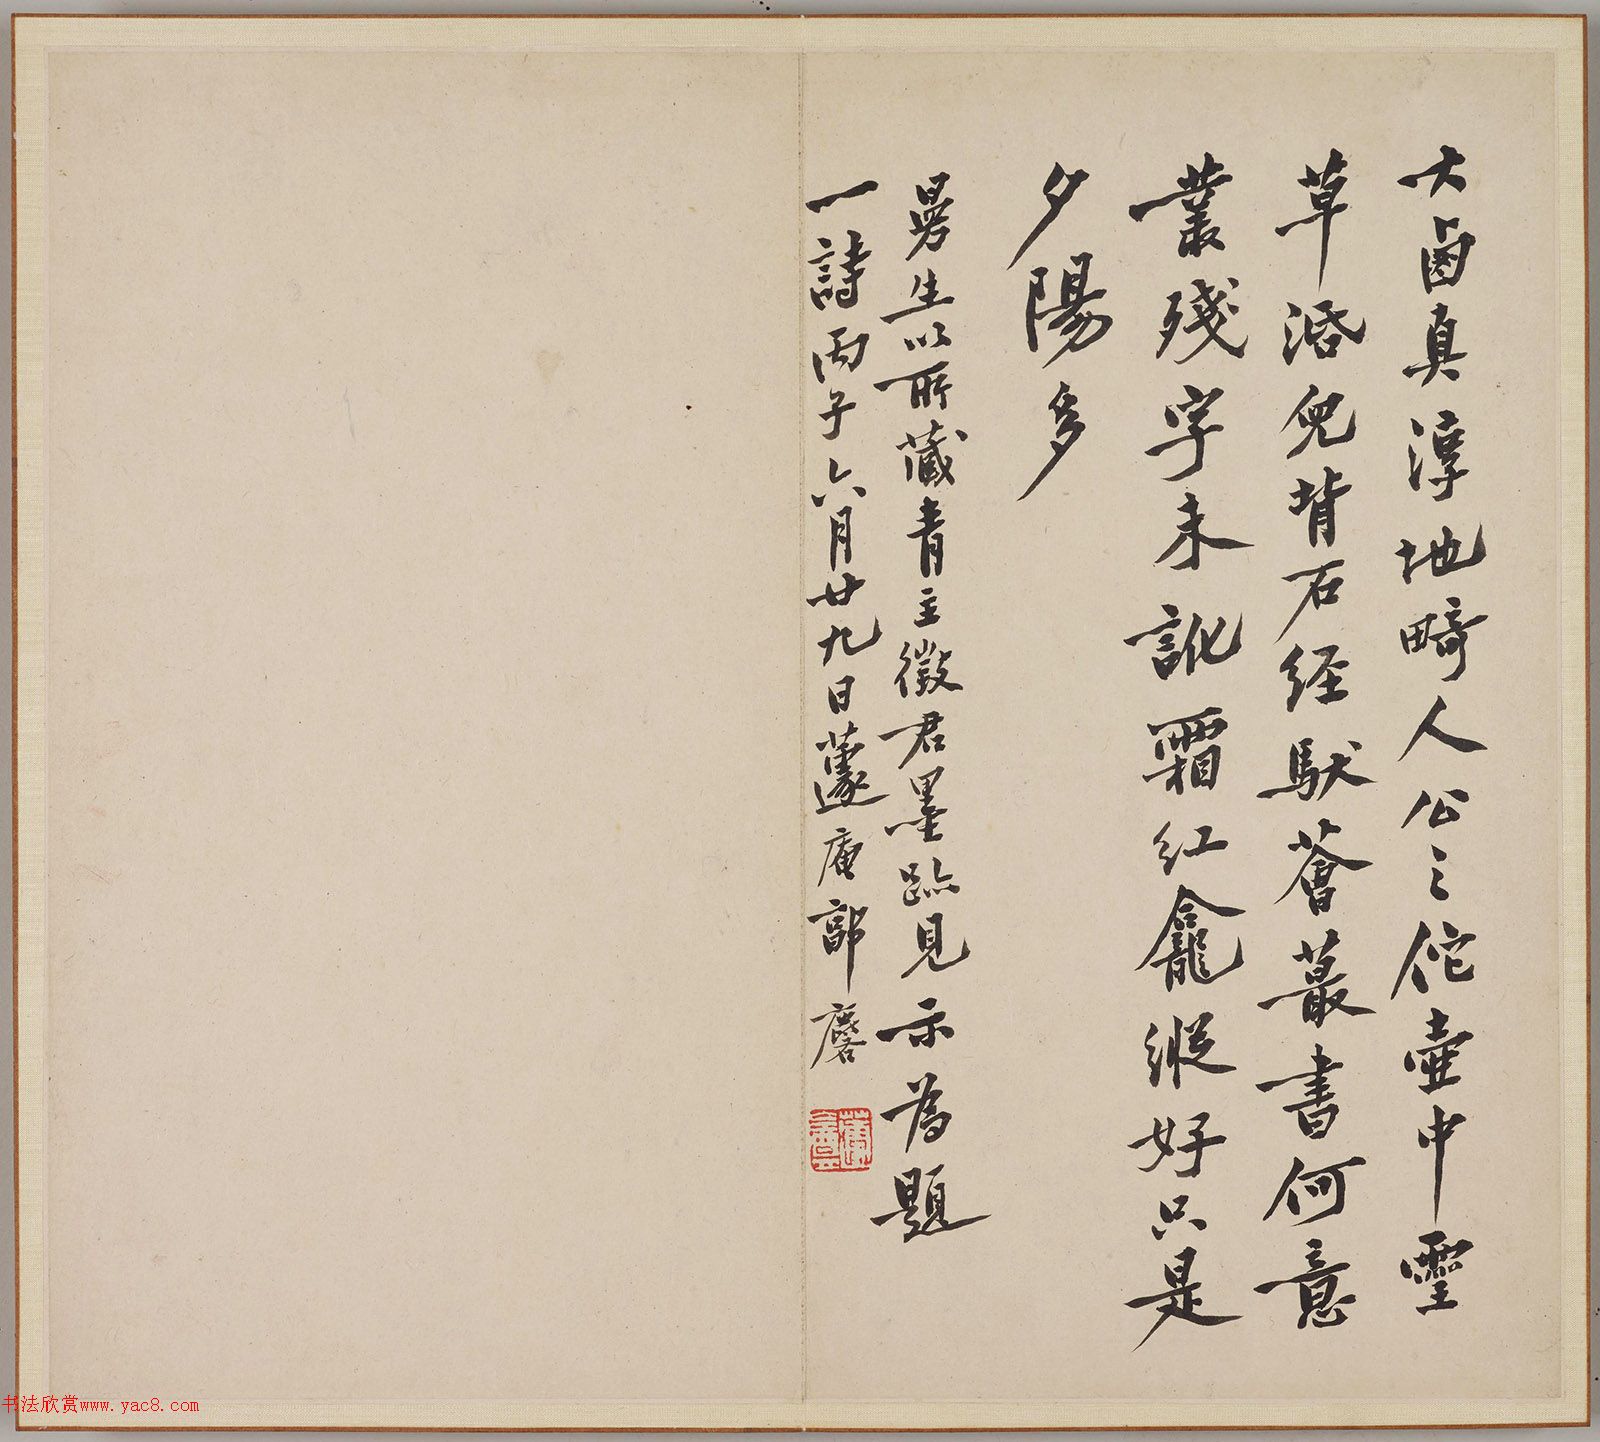 大鹵真淳地畸人公之佗壺中靈
草涽兜背石经馱薈蕞書何意
叢殘字未訛霜红龕縱好只是
夕陽多
曼生以所藏青主徵君墨跡見示為題
一詩丙子六月廿九日蘧庵郭麐
书法欣赏www.yac8.com